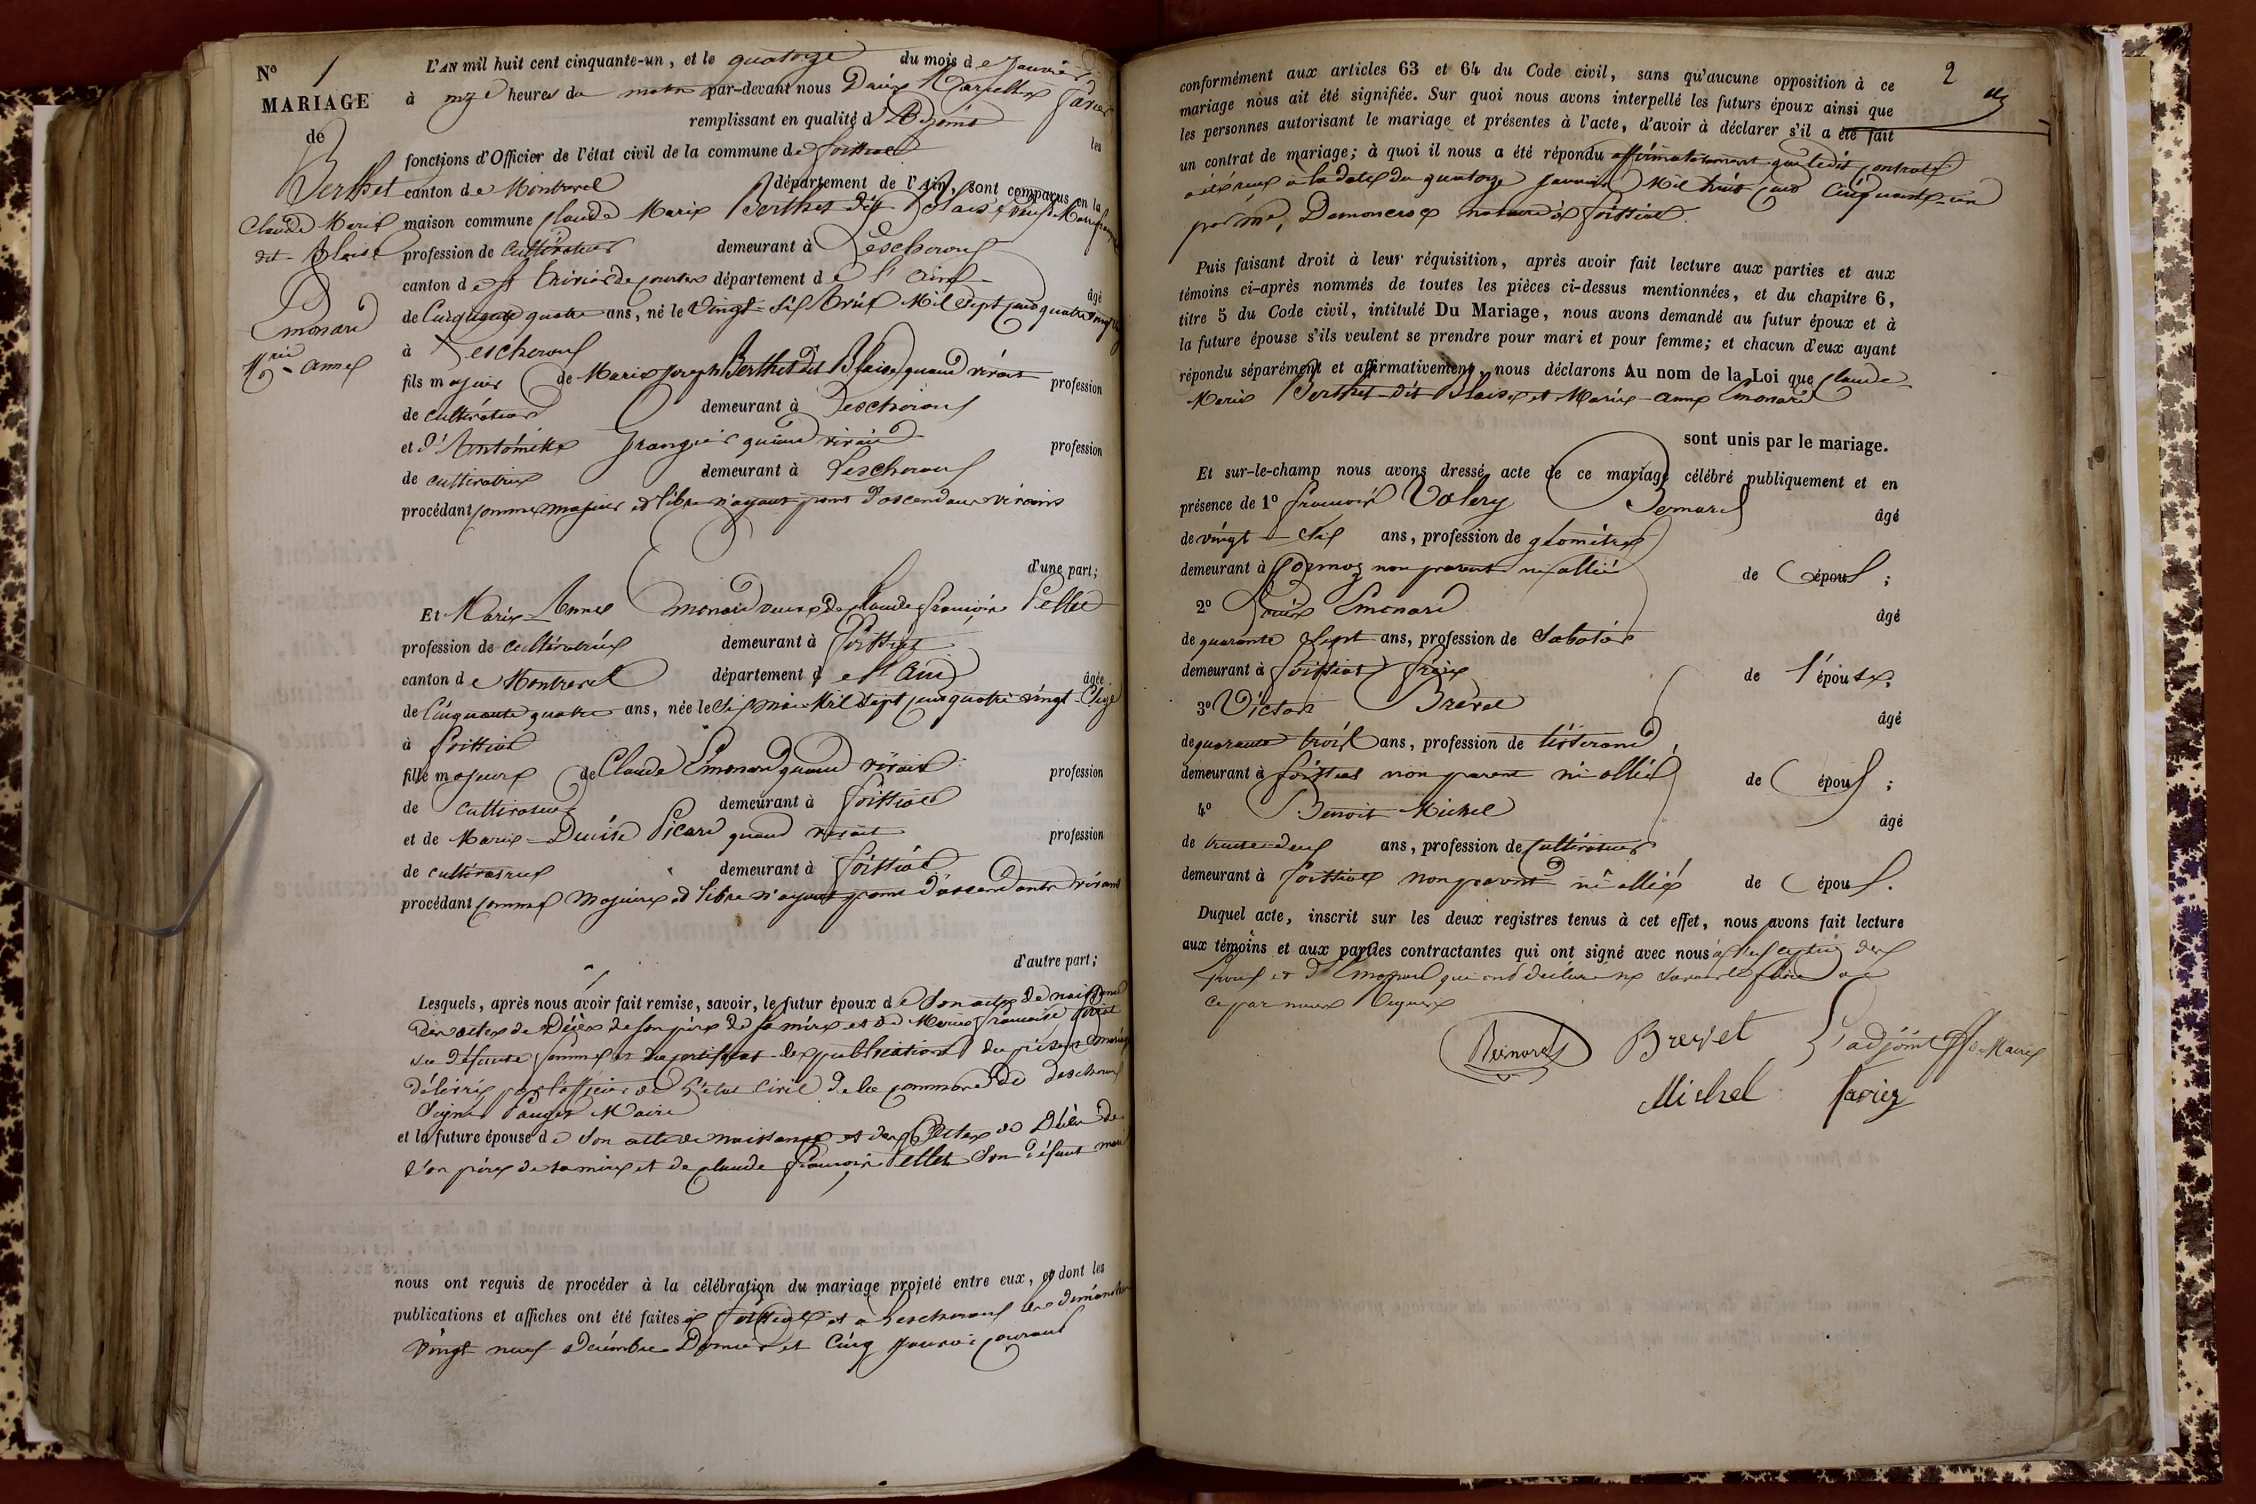 N° 1
MARIAGE
de
Berthet
Claude Marie
dit Blaise
&
Emonard
Marie Anne
L'AN mil huit cent cinquante-un, et le quatorze du mois de Janvier
à onze heures du matin par-devant nous Denis Marcellin Favier
remplissant en qualité d'Adjoint les
fonctions d'Officier de l'état civil de la commune de foissiat
canton de Montrevel département de l'Ain, sont comparus en la
maison commune Claude Marie Berthet dit Blaise veuf de Marie françoise
profession de Cultivateur demeurant à Lescheroux
canton de St Trivier de courtes département de l'ain âgé
de Cinquante quatre ans, né le Vingt six Avril Mil sept cent quatre vingt
à Lescheroux
fils majeur de Marie Joseph Berthet dit Blaise quand vivait profession
de cultivateur demeurant à Lescheroux
et d'Antoinette Grangier quand vivait profession
de cultivatrice demeurant à Lescheroux
procédant comme majeur et libre n'ayant point d'ascendans vivans
d'une part;
Et Marie Anne Emonard veuve de Claude françois Pellet
profession de cultivatrice demeurant à foissiat
canton de Montrevel département de l'Ain âgée
de Cinquante quatre ans, née le six mai Mil sept cent quatre vingt seize
à foissiat
fille majeure de Claude Emonard quand vivait profession
de cultivateur demeurant à foissiat
et de Marie Denise Picard quand vivait profession
de cultivatrice demeurant à foissiat
procédant comme majeure et libre n'ayant point d'ascendants vivans
d'autre part;
Lesquels, après nous avoir fait remise, savoir, le futur époux de son acte de naissance
des actes de Décès de son père de sa mère et de Marie françoise
sa défunte femme et du certificat des publications du présent mariage
délivrés par l'officier de l'état Civil de la commune de Lescheroux
Signé Pauget Maire
et la future épouse de son acte de naissance et des Actes de Décès de
son père de sa mère et de claude françois Pellet son défunt mari
nous ont requis de procéder à la célébration du mariage projeté entre eux, et dont les
publications et affiches ont été faites à foissiat et à Lescheroux les dimanches
vingt neuf décembre Dernier et Cinq Janvier courant
2
conformément aux articles 63 et 64 du Code civil, sans qu'aucune opposition à ce
mariage nous ait été signifiée. Sur quoi nous avons interpellé les futurs époux ainsi que
les personnes autorisant le mariage et présentes à l'acte, d'avoir à déclarer s'il a été fait
un contrat de mariage; à quoi il nous a été répondu affirmativement que ledit contrat
a été reçu à la date du quatorze Janvier Mil huit cent Cinquante-un
par me Demoncroex notaire à foissiat.
Puis faisant droit à leur réquisition, après avoir fait lecture aux parties et aux
témoins ci-après nommés de toutes les pièces ci-dessus mentionnées, et du chapitre 6,
titre 5 du Code civil, intitulé Du Mariage, nous avons demandé au futur époux et à
la future épouse s'ils veulent se prendre pour mari et pour femme; et chacun d'eux ayant
répondu séparément et affirmativement, nous déclarons Au nom de la Loi que Claude
Marie Berthet dit Blaise et Marie-anne Emonard
sont unis par le mariage.
Et sur-le-champ nous avons dressé acte de ce mariage célébré publiquement et en
présence de 1° françois Valery Bernard âgé
de vingt six ans, profession de géomètre
demeurant à Cormoz non parent ni allié de époux;
2° Louis Emonard âgé
de quarante Sept ans, profession de Sabotier
demeurant à foissiat frère de l'épouse;
3° Victor Brevet âgé
de quarante trois ans, profession de tisserand
demeurant à foissiat non parent ni allié de époux;
4° Benoit Michel âgé
de trente deux ans, profession de Cultivateur
demeurant à foissiat non parent ni allié de époux.
Duquel acte, inscrit sur les deux registres tenus à cet effet, nous avons fait lecture
aux témoins et aux parties contractantes qui ont signé avec nous à l'exception des
époux et d'Emonard qui ont déclaré ne savoir le faire de
ce par nous requis
Bernard Brevet L'adjoint Ff. de Maire
Michel Favier